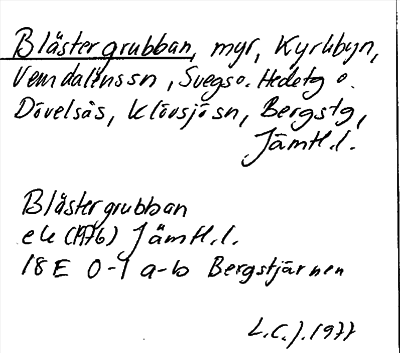 Blästergrubban, myr, Kyrkbyn,
Vemdalenssn, Svegs o. Hedetg o.
Dövelsås, Klövsjösn, Bergstg,
Jämtl.l.
Blästergrubban
ek (1976) Jämtl.l.
18E 0-1 a-b Bergstjärnen
L.C.J. 1977